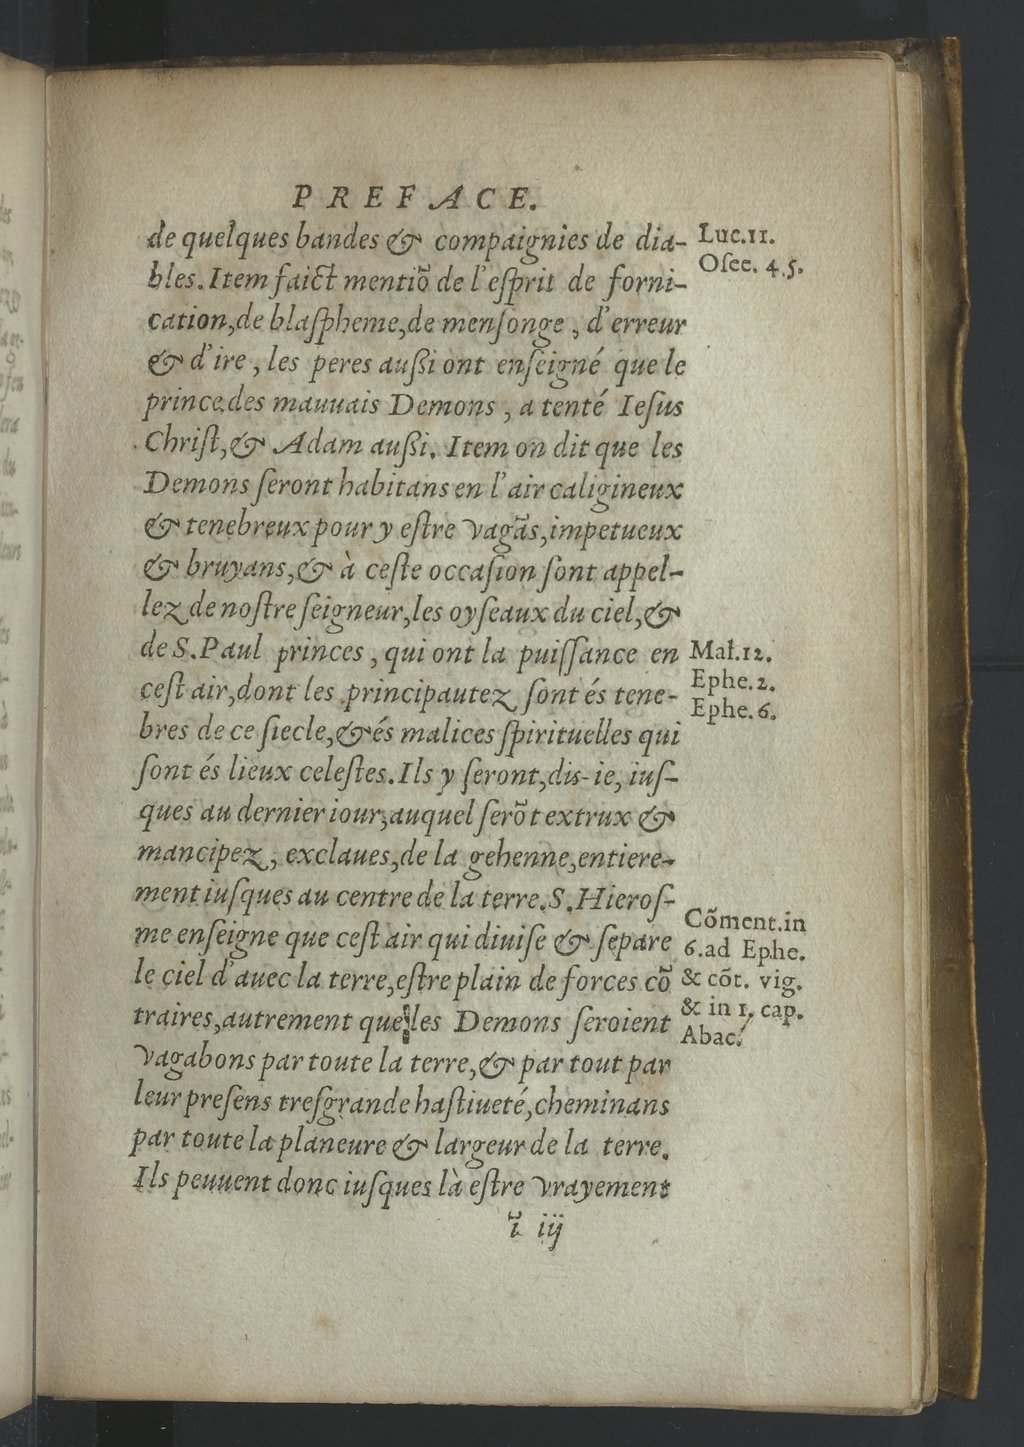 PREFACE.
de quelques bandes & compaignies de dia-
bles. Item faict mentiõ de l'eſprit de forni-
cation, de blaſpheme, de menſonge, d'erreur
& d'ire, les peres auſſi ont enſeigné que le
prince des mauuais Demons, a tenté Ieſus
Chriſt, & Adam auſſi. Item on dit que les
Demons ſeront habitans en l'air caligineux
& tenebreux pour y eſtre vagãs, impetueux
& bruyans, & à ceſte occaſion ſont appel-
lez de noſtre ſeigneur, les oyſeaux du ciel, &
de S. Paul princes, qui ont la puiſſance en
ceſt air, dont les principautez ſont és tene-
bres de ce ſiecle, & és malices ſpirituelles qui
ſont és lieux celeſtes. Ils y ſeront, dis-ie, iuſ-
ques au dernier iour, auquel ſerõt extrux &
mancipez, exclaues, de la gehenne, entiere-
ment iuſques au centre de la terre. S. Hieroſ-
me enſeigne que ceſt air qui diuiſe & ſepare
le ciel d'auec la terre, eſtre plain de forces cõ
traires, autrement que les Demons ſeroient
vagabons par toute la terre, & par tout par
leur preſens treſgrande haſtiueté, cheminans
par toute la planeure & largeur de la terre.
Ils peuuent donc iuſques là eſtre vrayement
ĩ iij
Luc. 11.
Oſee. 4. 5.
Mat. 12.
Ephe. 2.
Ephe. 6.
Cõment. in
6. ad Ephe.
& cõt. vig.
& in 1. cap.
Abac.